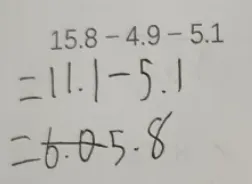 15.8 - 4.9 - 5.1
=11.1-5.1
=5.8